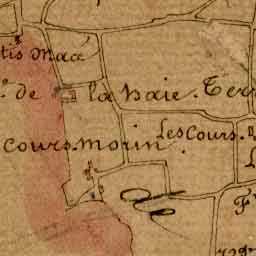 tis maa
de la haie. Terr
cours. morin
Les Cours.